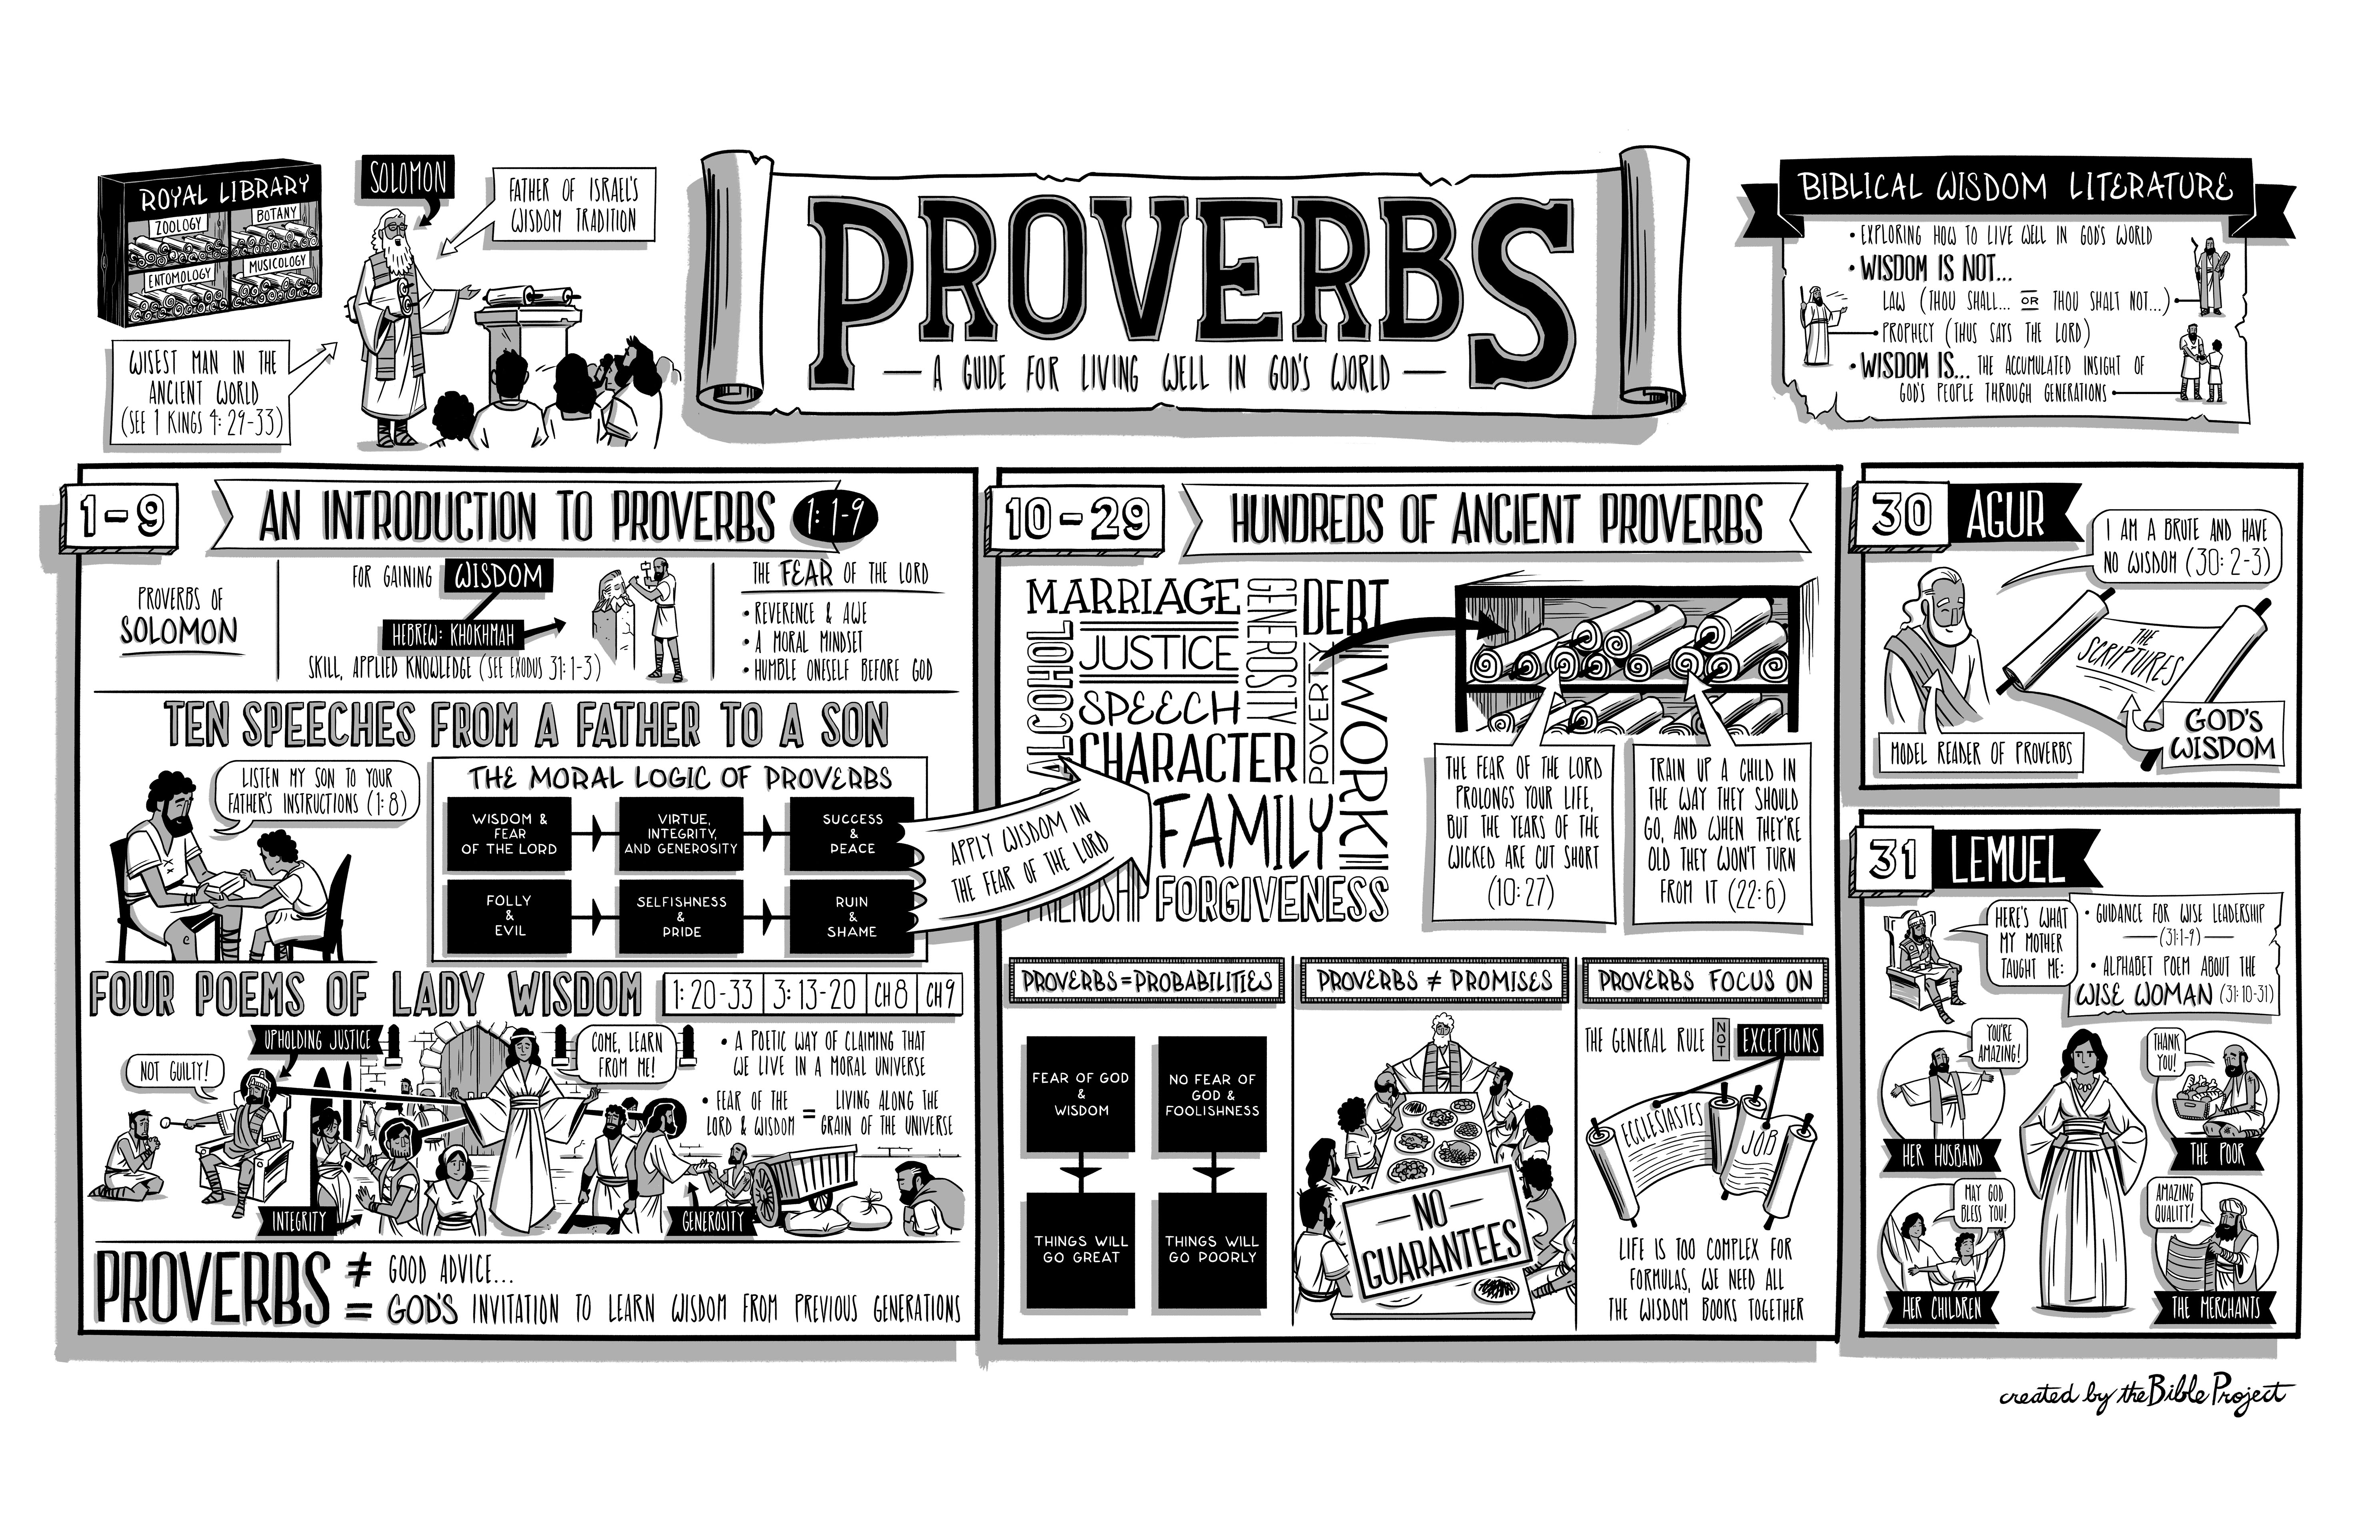 ROYAL LIBRARY
ZOOLOGY
BOTANY
ENTOMOLOGY
MUSICOLOGY
SOLOMON
FATHER OF ISRAEL'S
WISDOM TRADITION
WISEST MAN IN THE
ANCIENT WORLD
(SEE 1 KINGS 4: 29-33)
PROVERBS
— A GUIDE FOR LIVING WELL IN GOD'S WORLD —
BIBLICAL WISDOM LITERATURE
• EXPLORING HOW TO LIVE WELL IN GOD'S WORLD
• WISDOM IS NOT...
LAW (THOU SHALL... OR THOU SHALT NOT...)
PROPHECY (THUS SAYS THE LORD)
• WISDOM IS... THE ACCUMULATED INSIGHT OF
GOD'S PEOPLE THROUGH GENERATIONS
1-9
AN INTRODUCTION TO PROVERBS 1: 1-9
PROVERBS OF
SOLOMON
FOR GAINING WISDOM
HEBREW: KHOKHMAH
SKILL, APPLIED KNOWLEDGE (SEE EXODUS 31: 1-3)
THE FEAR OF THE LORD
• REVERENCE & AWE
• A MORAL MINDSET
• HUMBLE ONESELF BEFORE GOD
TEN SPEECHES FROM A FATHER TO A SON
LISTEN MY SON TO YOUR
FATHER'S INSTRUCTIONS (1: 8)
THE MORAL LOGIC OF PROVERBS
WISDOM &
FEAR
OF THE LORD
VIRTUE,
INTEGRITY,
AND GENEROSITY
SUCCESS
&
PEACE
FOLLY
&
EVIL
SELFISHNESS
&
PRIDE
RUIN
&
SHAME
APPLY WISDOM IN
THE FEAR OF THE LORD
FOUR POEMS OF LADY WISDOM
1: 20-33
3: 13-20
CH 8
CH 9
NOT GUILTY!
UPHOLDING JUSTICE
COME, LEARN
FROM ME!
INTEGRITY
GENEROSITY
• A POETIC WAY OF CLAIMING THAT
WE LIVE IN A MORAL UNIVERSE
• FEAR OF THE
LORD & WISDOM
=
LIVING ALONG THE
GRAIN OF THE UNIVERSE
PROVERBS
≠ GOOD ADVICE...
= GOD'S INVITATION TO LEARN WISDOM FROM PREVIOUS GENERATIONS
10-29
HUNDREDS OF ANCIENT PROVERBS
MARRIAGE
GENEROSITY
DEBT
ALCOHOL
JUSTICE
SPEECH
CHARACTER
POVERTY
WORK
FAMILY
FRIENDSHIP
FORGIVENESS
THE FEAR OF THE LORD
PROLONGS YOUR LIFE,
BUT THE YEARS OF THE
WICKED ARE CUT SHORT
(10: 27)
TRAIN UP A CHILD IN
THE WAY THEY SHOULD
GO, AND WHEN THEY'RE
OLD THEY WON'T TURN
FROM IT (22: 6)
PROVERBS = PROBABILITIES
FEAR OF GOD
&
WISDOM
NO FEAR OF
GOD &
FOOLISHNESS
THINGS WILL
GO GREAT
THINGS WILL
GO POORLY
PROVERBS ≠ PROMISES
— NO —
GUARANTEES
PROVERBS FOCUS ON
THE GENERAL RULE NOT EXCEPTIONS
ECCLESIASTES
JOB
LIFE IS TOO COMPLEX FOR
FORMULAS, WE NEED ALL
THE WISDOM BOOKS TOGETHER
30 AGUR
I AM A BRUTE AND HAVE
NO WISDOM (30: 2-3)
THE
SCRIPTURES
MODEL READER OF PROVERBS
GOD'S
WISDOM
31 LEMUEL
HERE'S WHAT
MY MOTHER
TAUGHT ME:
• GUIDANCE FOR WISE LEADERSHIP
— (31:1-9) —
• ALPHABET POEM ABOUT THE
WISE WOMAN (31: 10-31)
YOU'RE
AMAZING!
HER HUSBAND
THANK
YOU!
THE POOR
MAY GOD
BLESS YOU!
HER CHILDREN
AMAZING
QUALITY!
THE MERCHANTS
created by the Bible Project